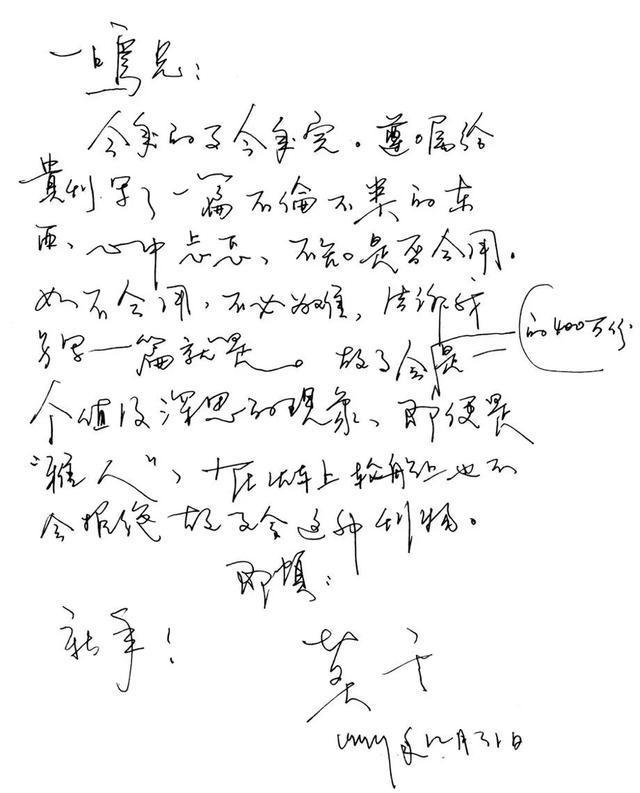 一鸣兄：
今年的事今年完。遵嘱给
貴刊写了一篇不倫不类的东
西，心中忐忑，不知是否合用。
如不合用，不必为难，告诉我
另写一篇就是。故事会 的400万份 是
个值得深思的现象，即便是
“雅人”，在火车上轮船上也不
会拒绝故事会这种刊物。
即頌：
新年！
莫言
年12月31日